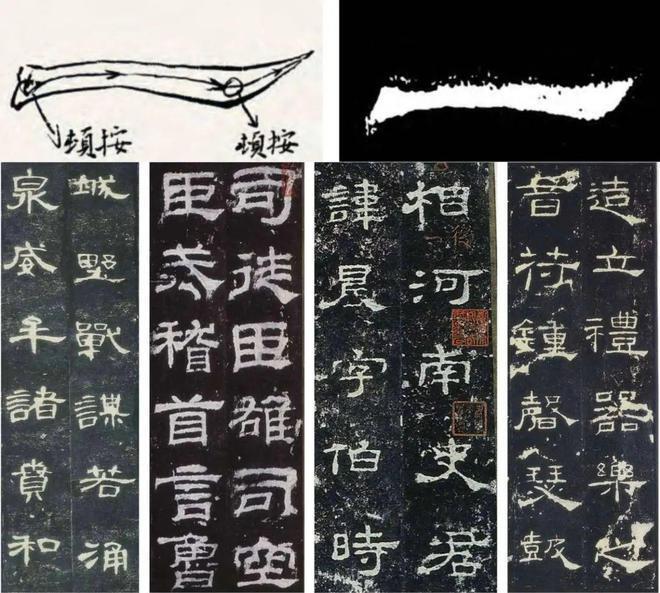 頓按
頓按
城野戰謀若涌
泉威牟諸賁和
司徒臣雄司空
臣戒稽首言魯
相河南史君
諱晨字伯時
造立禮器樂之
音符鍾磬瑟鼓